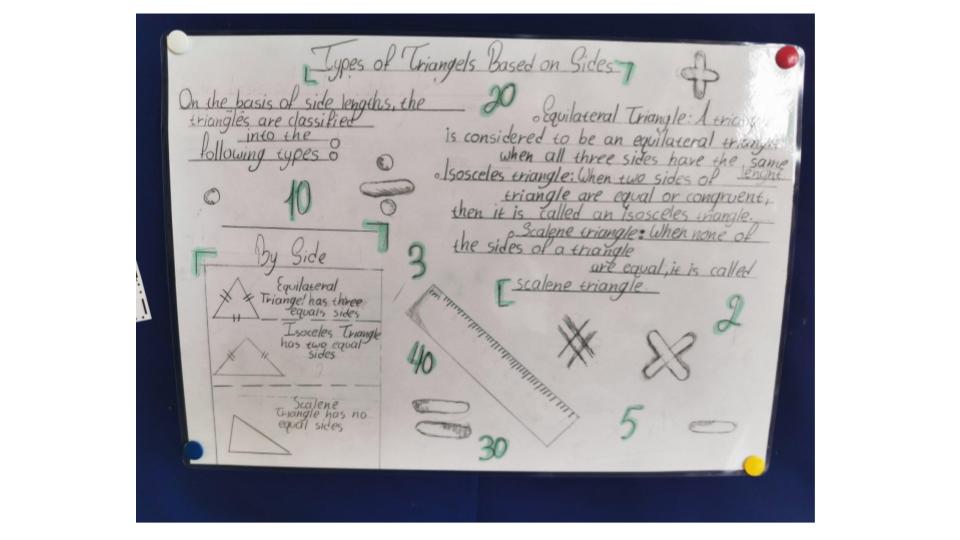 Types of Triangels Based on Sides
20
On the basis of side lengths, the
triangles are classified
into the
following types
10
Equilateral Triangle: A
is considered to be an equilateral triangle
when all three sides have the same
lenght
Isosceles triangle: When two sides of
triangle are equal or congruent,
then it is called an isosceles triangle.
Scalene triangle: When none of
the sides of a triangle
are equal, it is called
scalene triangle.
By Side
Equilateral
Triangel has three
equals sides
Isoceles Triangle
has two equal
sides
Scalene
Triangle has no
equal sides
3
2
40
5
30